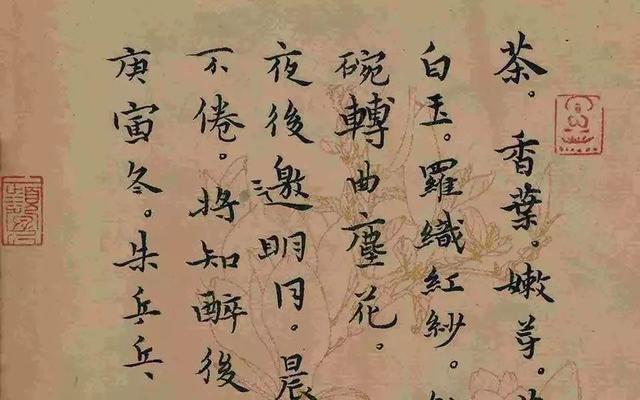 茶。香葉。嫩芽。
白玉。羅織紅紗。
碗轉曲塵花。
夜後邀明月。晨
不倦。将知醉後
庚寅冬。朱乓乓